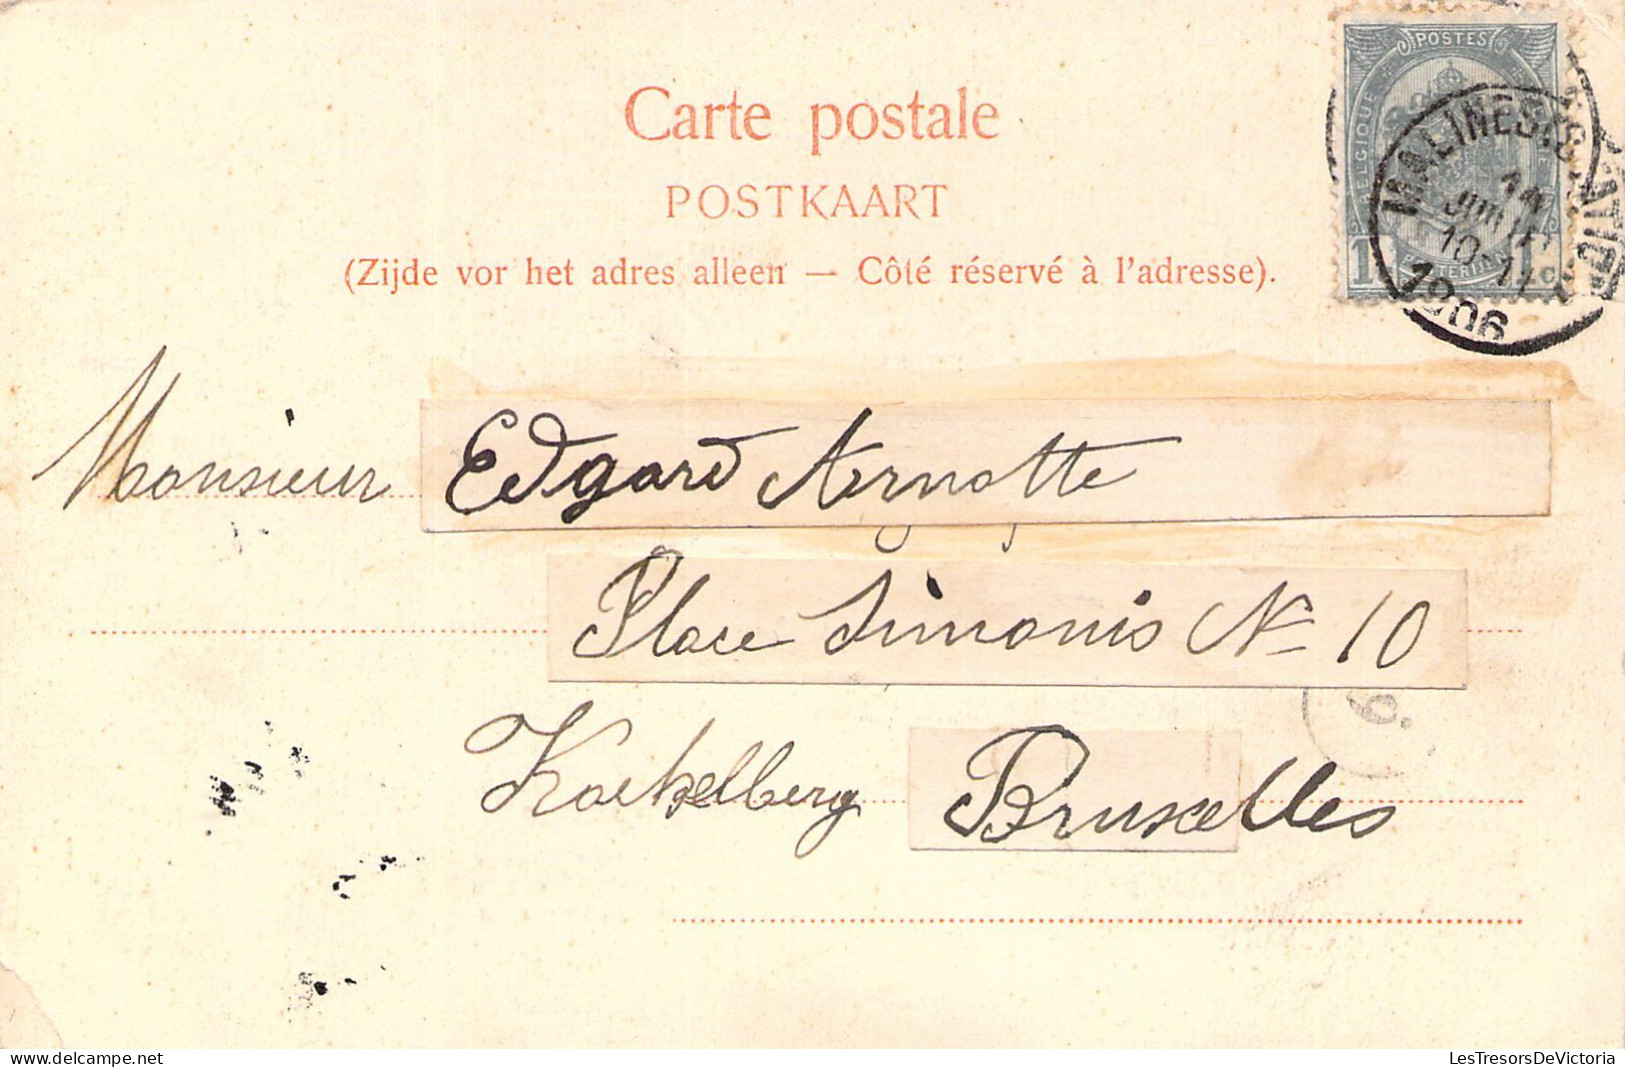 Carte postale
POSTKAART
(Zijde vor het adres alleen — Côté réservé à l'adresse).
POSTES
BELGIQUE
1
1c
MALINES
10-11
1906
Monsieur Edgard Arnotte
Place Simonis N= 10
Koekelberg Bruxelles
© Delcampe.net
LesTresorsDeVictoria